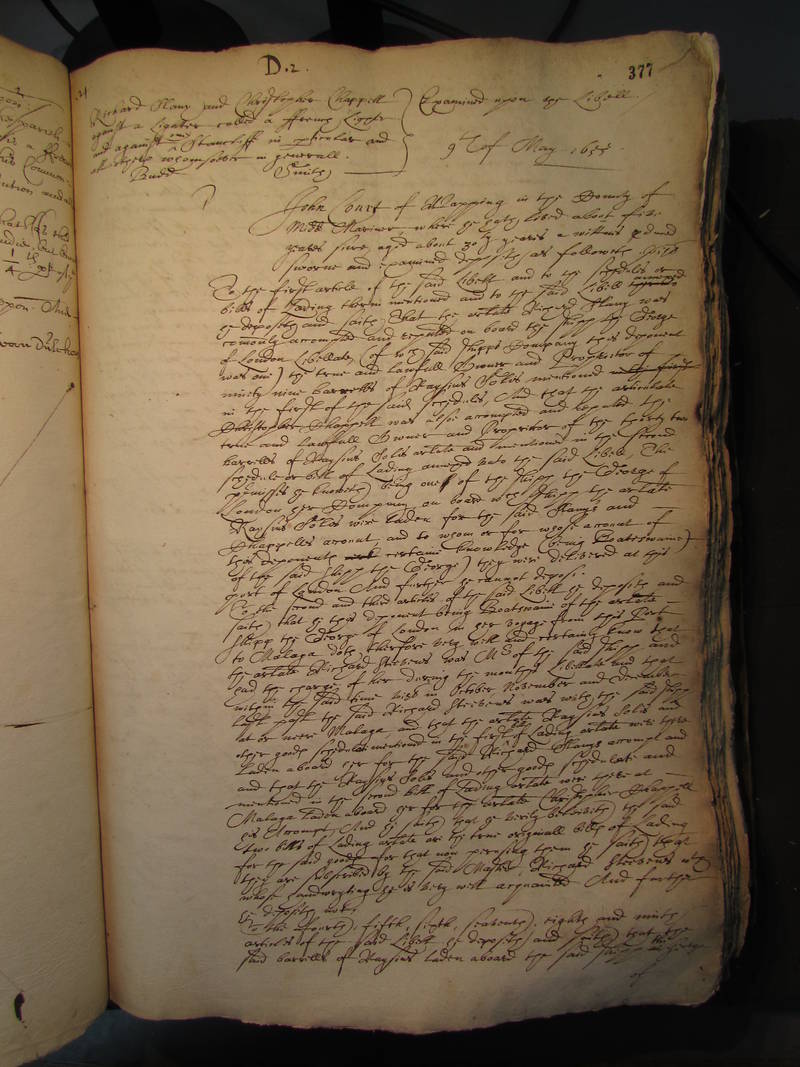 D.2.
377
Richard Slany and Christopher Chappell
against a Lighter called a ffrench Lighter
and against one Stancliff in particular and
all others whomsoever in generall.
Budd Smith
Examined upon the Libell
9th of May 1655
John Court of Wapping in the County of
Midd Mariner where he hath lived about five
yeares since, aged about 30 yeares a wittnes
sworne and examined deposeth as followeth
To the first article of the said Libell and to the schedules or
bills of Lading therein mentioned and to the said Libell annexed
he deposeth and saith, That the arlate Richard Slany was
comonly accompted and reputed on board the shipp the George
of London Libellate, (of which said shipps Company this deponent
was one) the true and lawfull Owner and Proprietor of
ninety nine barrells of Raysins Solis mentioned
in the first of the said schedules, And that the articulate
Christopher Chappell was also accompted and reputed the
true and lawfull Owner and Proprietor of the thirty two
barrells of Raysins Solis arlate and mentioned in the second
schedule or bill of Lading annexed unto the said Libell, The
premisses he knoweth being one of the shipp the George of
London her Company, on board which shipp the arlate
Raysins Solis were laden for the said Slanys and
Chappells account, and to whom or for whose account of
this deponents certaine knowledge (being Boateswaine
of the said shipp the George) they were delivered at this
port of London And further he cannot depose.
To the second and third articles of the said Libell he deposeth and
saith, that he this deponent being Boatswaine of the arlate
shipp the George of London in her voyage from this Port
to Malaga doth therefore very well and certainly know that
the arlate Richard Steevens was Mr of the said shipp and
had the charge of her during the moneths libellate and that
within the said time vizt in October November and December
last past the said Richard Steevens was with the said shipp
at or neere Malaga, and that the arlate Raysins Solis and
other goods schedulate mentioned in the first of Lading arlate were there
Laden aboard her for the said Richard Slanys accompt and
and that the Raysins Solis and other goods schedulate and
mentioned in the second bill of Lading arlate were there at
Malaga laden aboard her for the arlate Christopher Chappell
his Accompt, And he saith, that he verily beleiveth the said
two bills of Lading arlate are the true originall bills of Lading
for the said goods for that now perusing them he saith, that
they are subscribed by the said Master Richard Steevens with
whose handwryting he is very well acquainted And further
he deposeth not.
To the fourth, fifth, sixth, seaventh, eighth and ninth
articles of the said Libell he deposeth and saith, that the
said barrells of Raysins laden aboard the said shipp the George
of